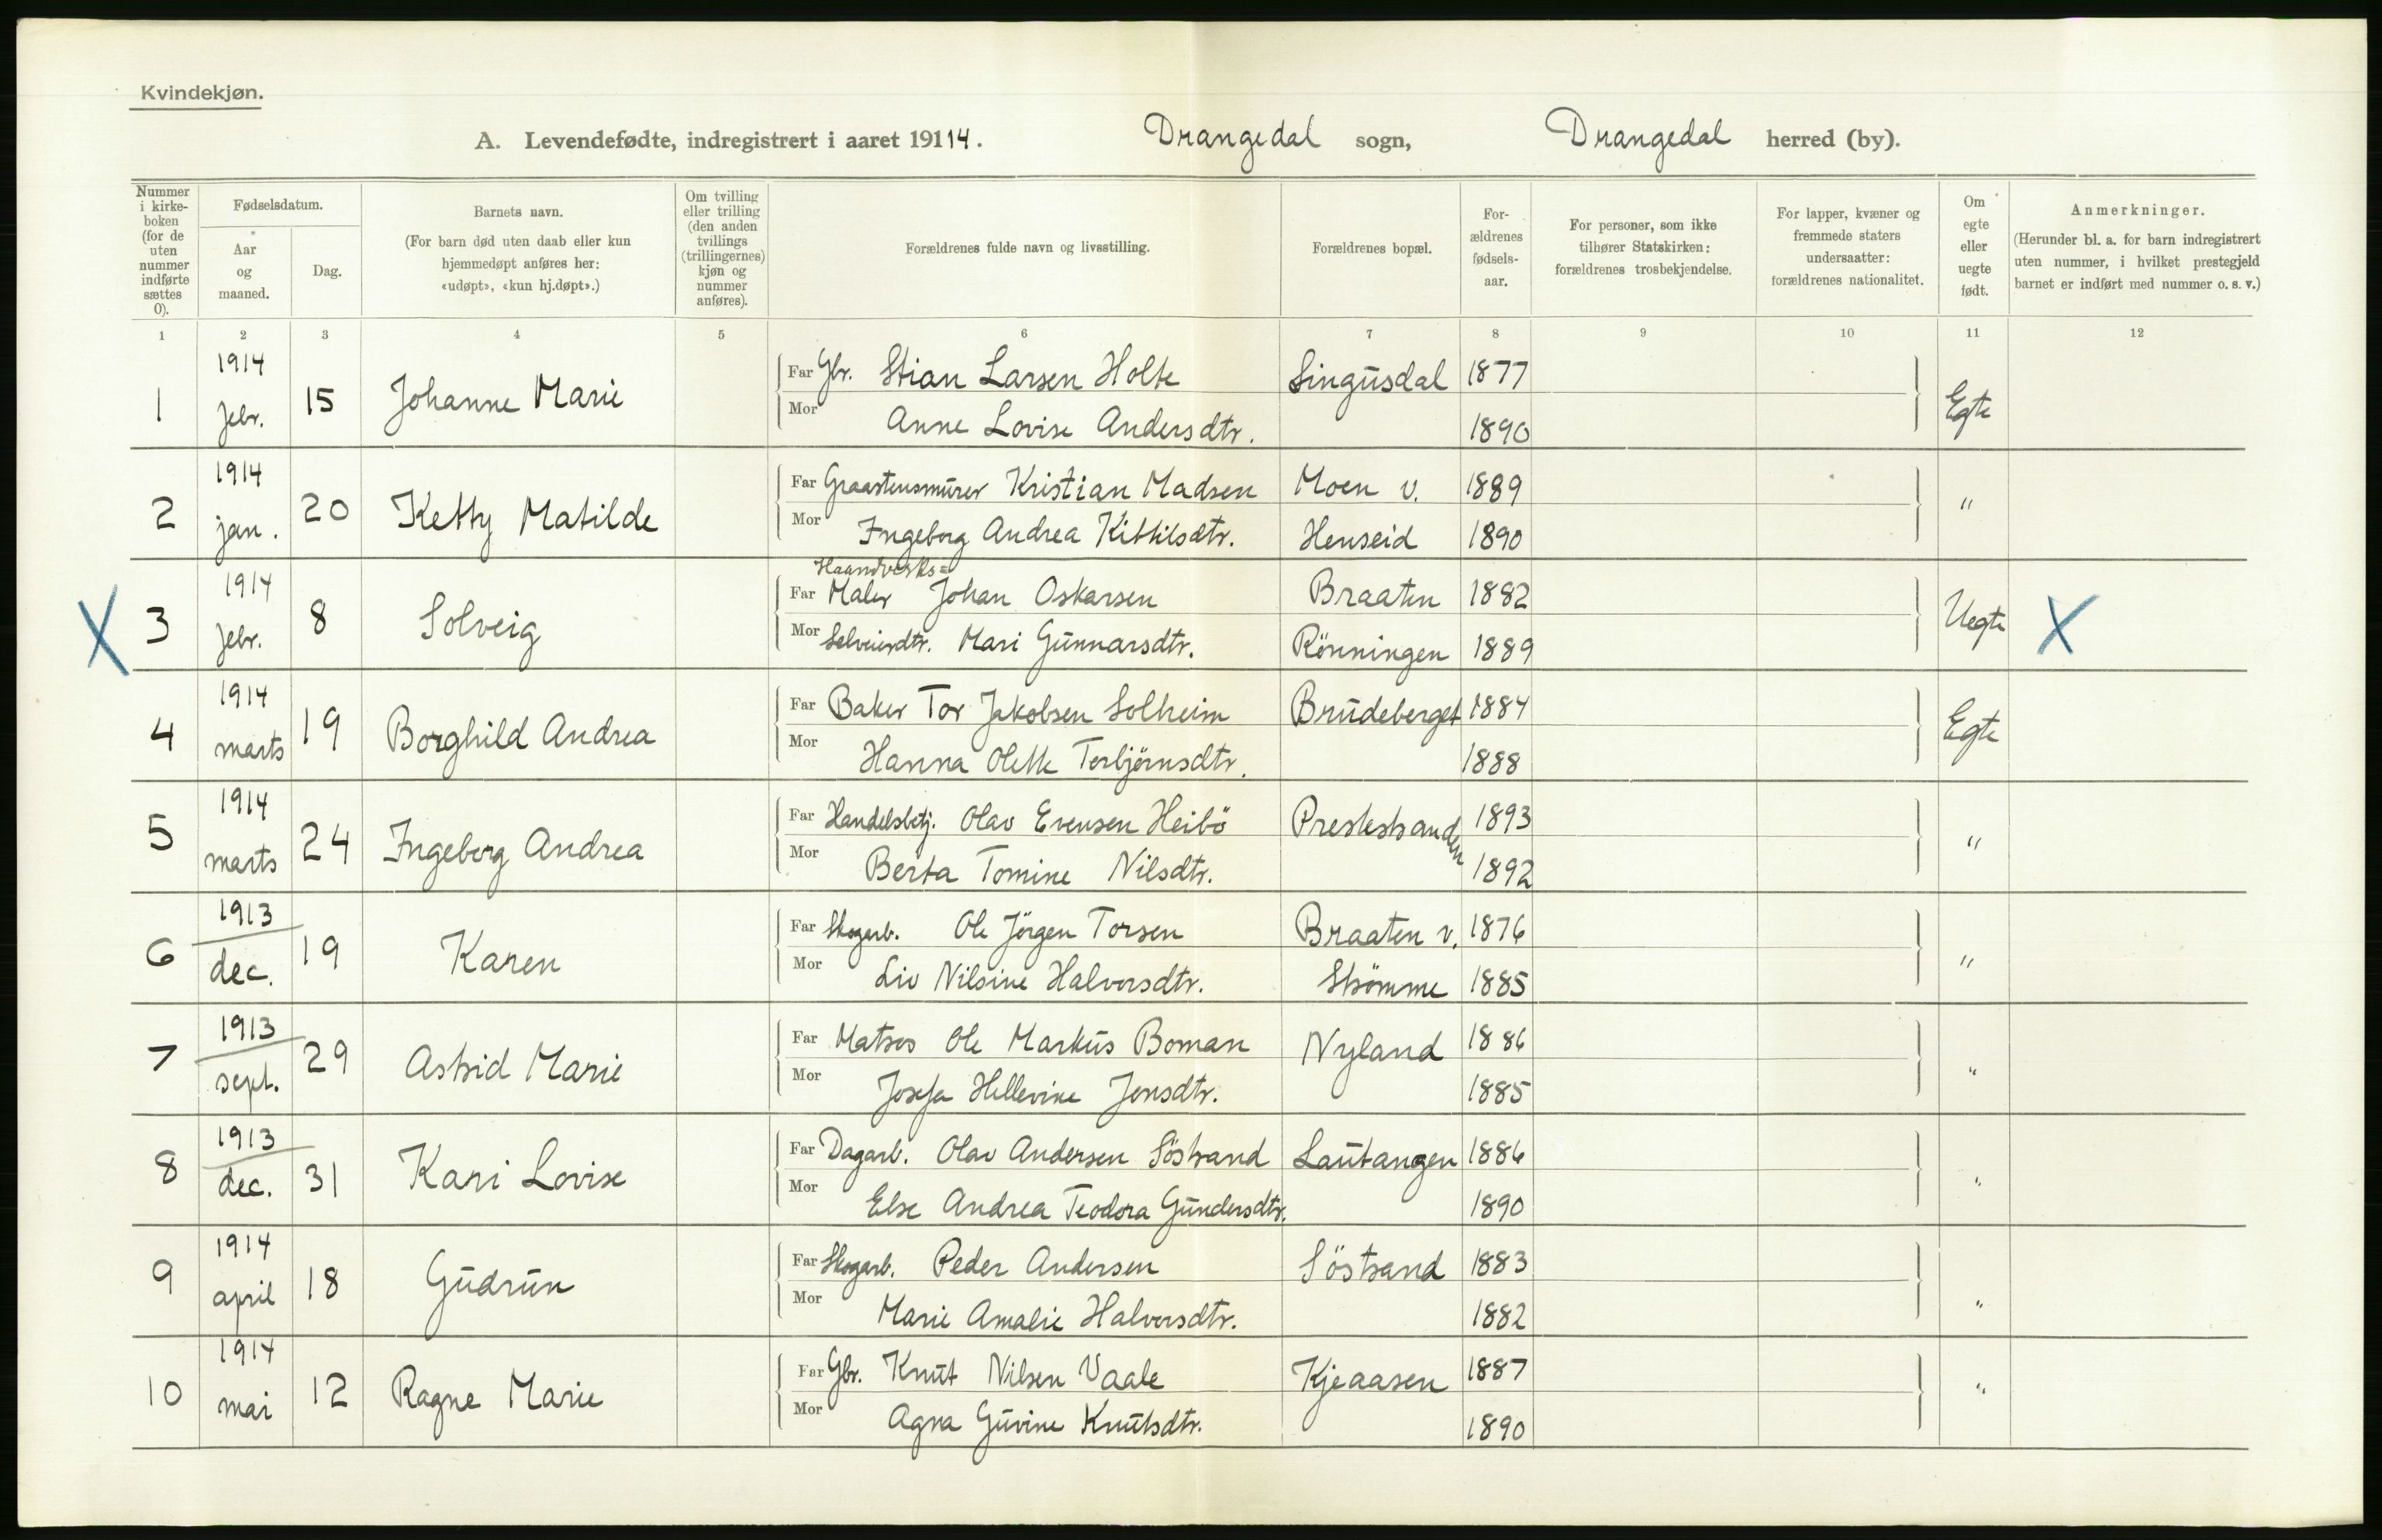 Kvindekjøn.
A. Levendefødte, indregistrert i aaret 19114. Drangedal sogn, Drangedal herred (by).
Nummer i kirke-boken (for de uten nummer indførte sættes 0).
Fødselsdatum.
Aar og maaned.
Dag.
Barnets navn.
(For barn død uten daab eller kun hjemmedøpt anføres her: «udøpt», «kun hj.døpt».)
Om tvilling eller trilling (den anden tvillings (trillingernes) kjøn og nummer anføres).
Forældrenes fulde navn og livsstilling.
Forældrenes bopæl.
For-ældrenes fødsels-aar.
For personer, som ikke tilhører Statskirken: forældrenes trosbekjendelse.
For lapper, kvæner og fremmede staters undersaatter: forældrenes nationalitet.
Om egte eller uegte født.
Anmerkninger.
(Herunder bl. a. for barn indregistrert uten nummer, i hvilket prestegjeld barnet er indført med nummer o. s. v.)
1 2 3 4 5 6 7 8 9 10 11 12
1 1914 febr. 15 Johanne Marie Far Gbr. Stian Larsen Holte Singusdal 1877 Egte
Mor Anne Lovise Andersdtr. 1890
2 1914 jan. 20 Ketty Matilde Far Graastensmurer Kristian Madsen Moen v. 1889 "
Mor Ingeborg Andrea Kittilsdtr. Henseid 1890
X 3 1914 febr. 8 Solveig Far Haandverks= Maler Johan Oskarsen Braaten 1882 Uegte X
Mor Selveierdtr. Mari Gunnarsdtr. Rönningen 1889
4 1914 marts 19 Borghild Andrea Far Baker Tor Jakobsen Solheim Brudeberget 1884 Egte
Mor Hanna Olette Torbjörnsdtr. 1888
5 1914 marts 24 Ingeborg Andrea Far Handelsbetj. Olav Evensen Heibö Prestestranden 1893 "
Mor Berta Tomine Nilsdtr. 1892
6 1913 dec. 19 Karen Far Skogarb. Ole Jörgen Torsen Braaten v. 1876 "
Mor Liv Nilsine Halvorsdtr. Strömme 1885
7 1913 sept. 29 Astrid Marie Far Matros Ole Markus Boman Nyland 1886 "
Mor Josefa Hellevine Jensdtr. 1885
8 1913 dec. 31 Kari Lovise Far Dagarb. Olav Andersen Söstrand Lautangen 1886 "
Mor Else Andrea Teodora Gundersdtr. 1890
9 1914 april 18 Gudrun Far Skogarb. Peder Andersen Söstrand 1883 "
Mor Marie Amalie Halvorsdtr. 1882
10 1914 mai 12 Ragne Marie Far Gbr. Knut Nilsen Vaale Kjeaasen 1887 "
Mor Agna Guvine Knutsdtr. 1890